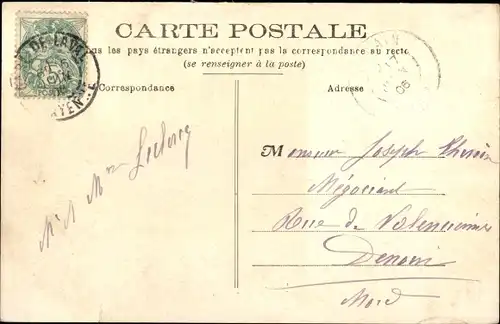 CARTE POSTALE
us les pays étrangers n'acceptent pas la correspondance au recto
(se renseigner à la poste)
Correspondance
Adresse
DE LAVAL
MAYENNE
17
06
Mr & Mme Leclercq
Monsieur Joseph
Négociant
Rue de Valenciennes
Denain
Nord